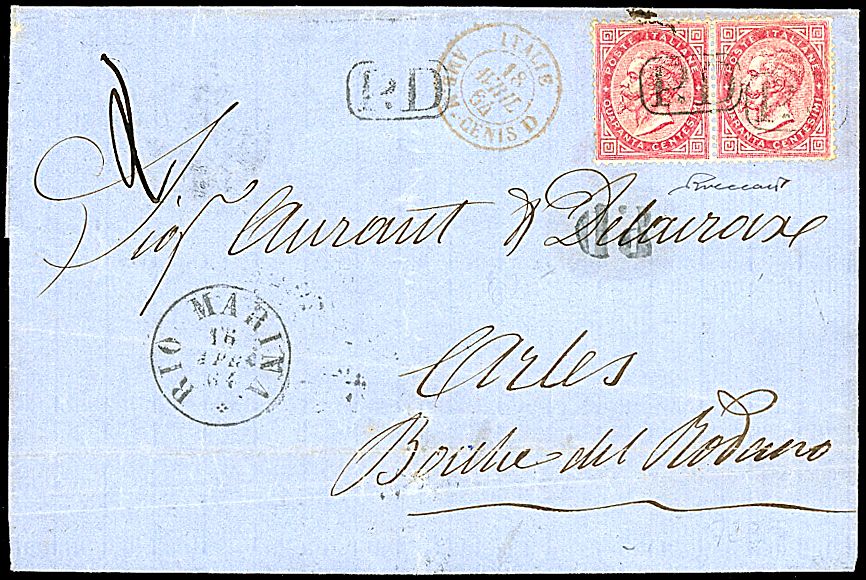 P.D
ITALIE
18
AVRIL
64
AMB. M. CENIS D
POSTE ITALIANE
QUARANTA CENTESIMI
POSTE ITALIANE
QUARANTA CENTESIMI
P.D
P.D
Sig.ri Aurant & Delairax
RIO MARINA
16
APR
64
Arles
Bouche del Rodano